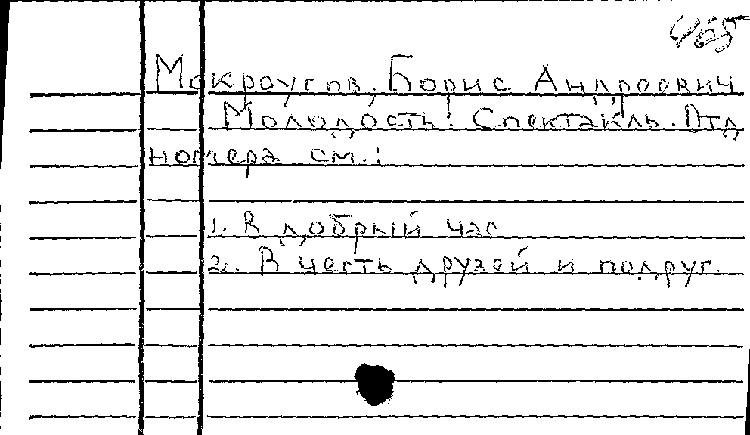 465
Мокроусов, Борис Андреевич
Молодость. Спектакль. Отд
номера см.:
1. В добрый час
2. В честь друзей и подруг.